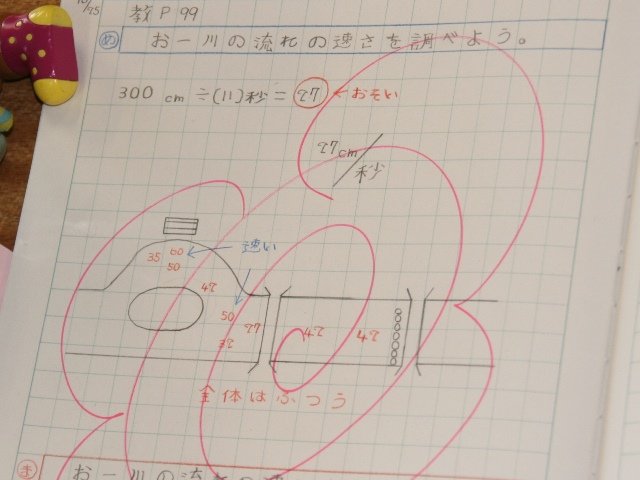 10/25
教 P 99
め お一川の流れの速さを調べよう。
300 cm ÷(11)秒= 27 ←おそい
27cm/秒
速い
35 60
50
42
50
27
32
42 42
全体はふつう
ま お一川の流れの速